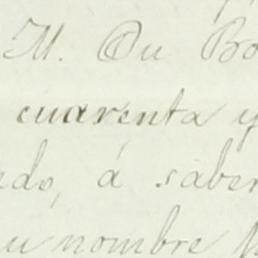 M. Du Bo
cuarenta y
ndo, á saber
su nombre